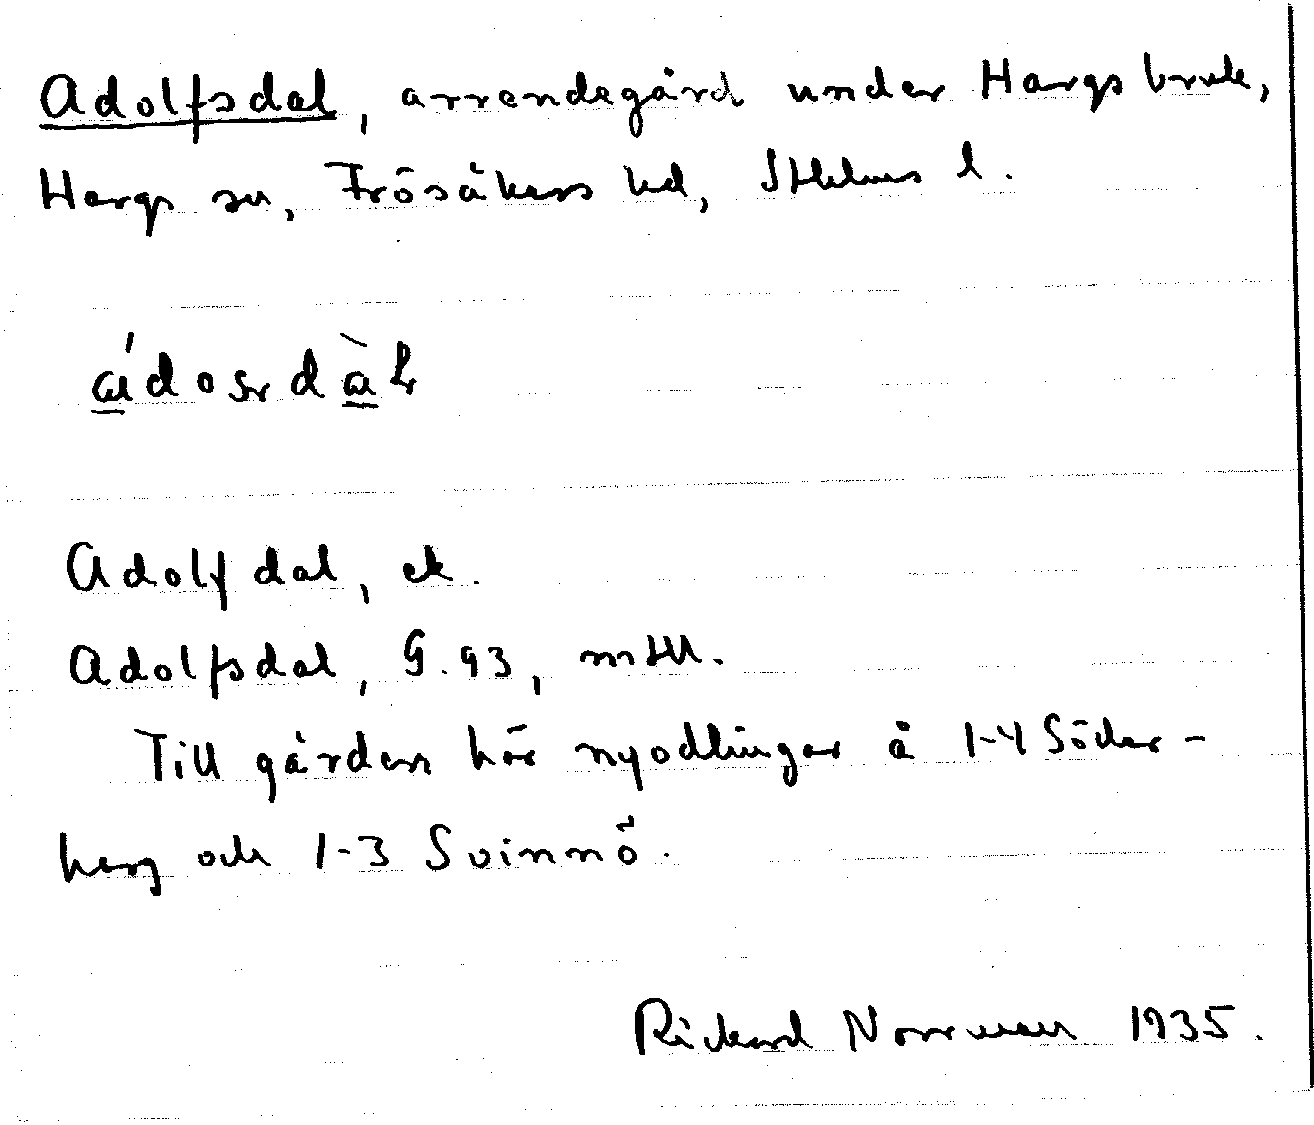 Adolfsdal, arrendegård under Hargs bruk,
Hargs sn, Frösåkers hd, Sthlms l.
ádosdàl
Adolfdal, ek.
Adolfsdal, G. 93, mtll.
Till gården hör nyodlingar å 1-4 Söder-
berg och 1-3 Svinnö.
Rickard Norrman 1935.